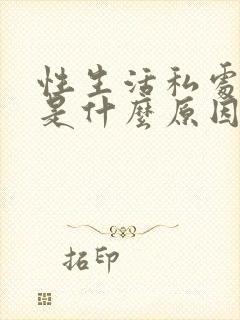 性生活私處
是什麼原因
招印